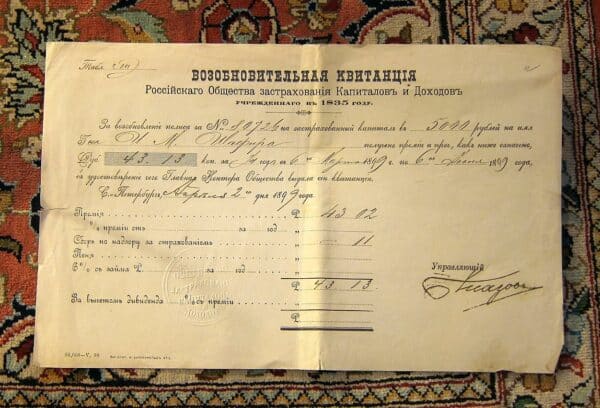 Табл. V
ВОЗОБНОВИТЕЛЬНАЯ КВИТАНЦІЯ
Россійскаго Общества застрахованія Капиталовъ и Доходовъ
УЧРЕЖДЕННАГО въ 1835 году.
За возобновленіе полиса за № 80726 на застрахованный капиталъ въ 5000 рублей на имя
И. М. Шафира получено преміи и проч., какъ ниже означено,
Руб. 43. 13 коп. за года съ 6го Марта 1899 г. по 6го Іюня 1899 года,
въ удостовѣреніе чего Главная Контора Общества выдала сію квитанцію.
С.-Петербургъ, Апрѣля 2го дня 1899 года
Премія Р. 43. 02
% преміи отъ за годъ
Сборъ по надзору за страхованіемъ — 11
Пеня
6% съ займа Р. за годъ
Р. 43. 13
За вычетомъ дивиденда % съ преміи
Р.
Управляющій